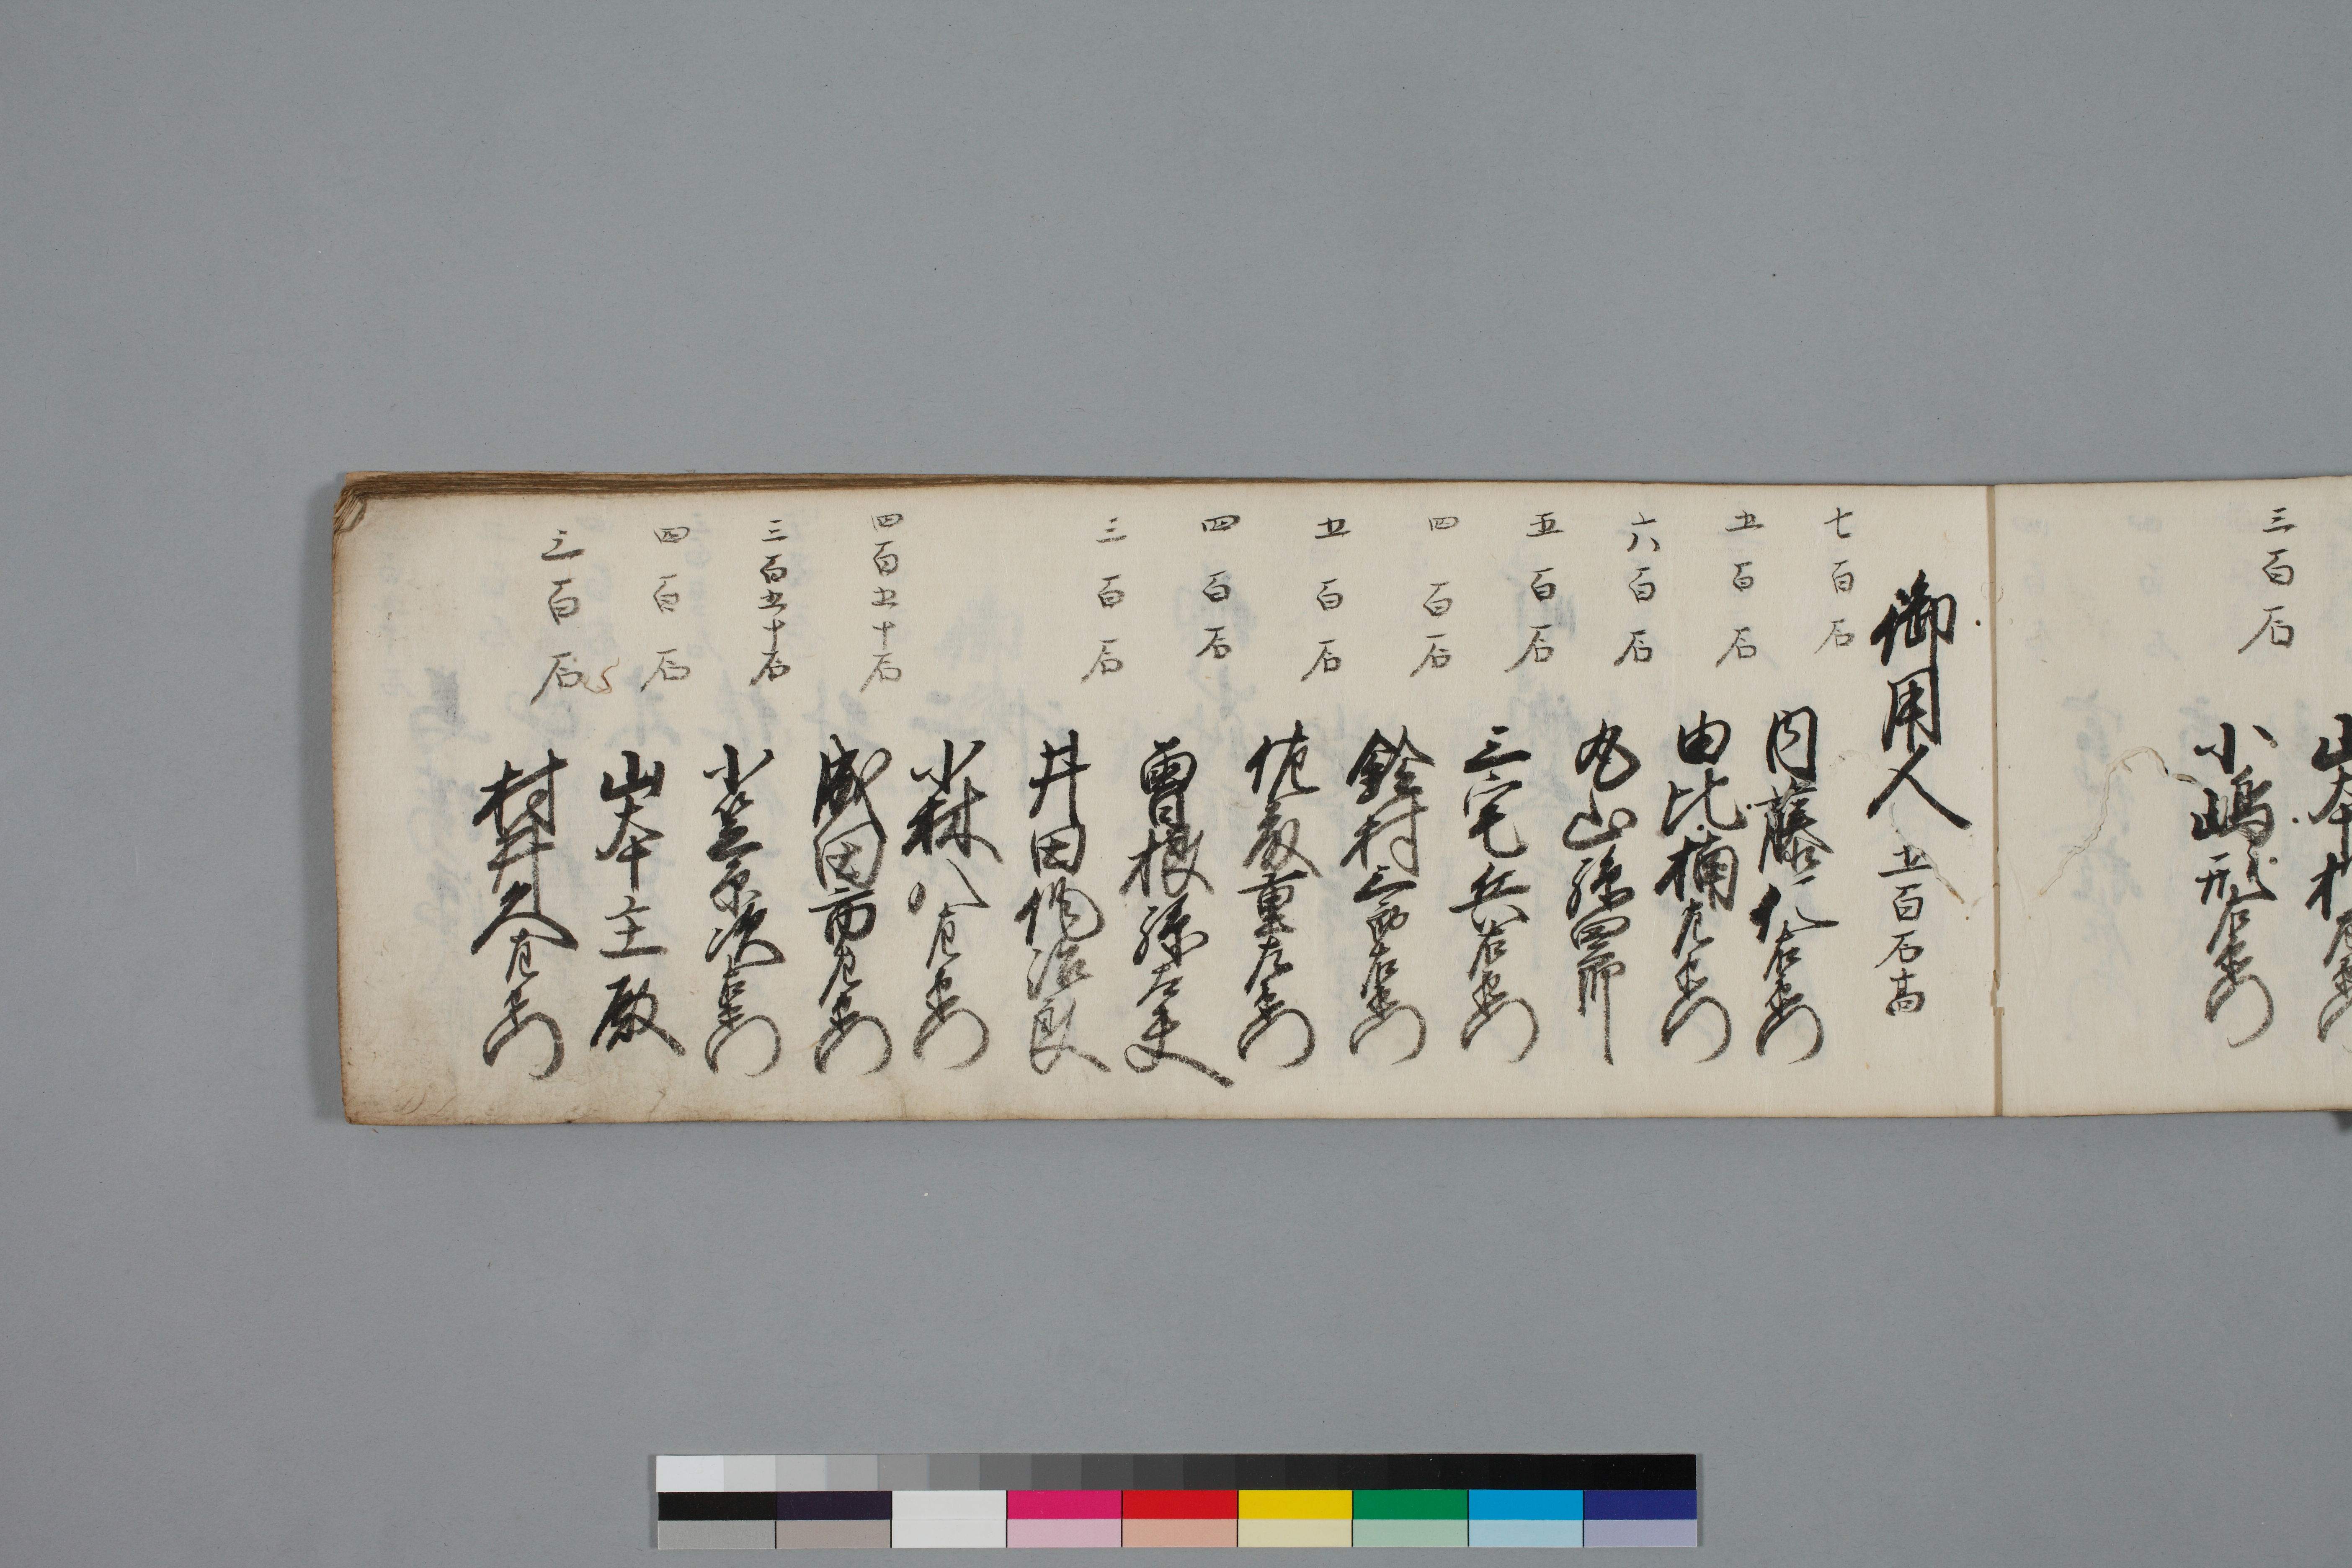 山本
三百石
小嶋形右衛門
御用人 五百石高
七百石
内藤仁右衛門
五百石
由比楠左衛門
六百石
丸山孫四郎
五百石
三宅兵右衛門
四百石
鈴村三郎右衛門
五百石
佐藤重左衛門
四百石
曽根孫太夫
三百石
井田治良
小林八左衛門
四百五十石
成田市左衛門
三百五十石
小笠原次右衛門
四百石
山本主殿
三百石
村井久左衛門